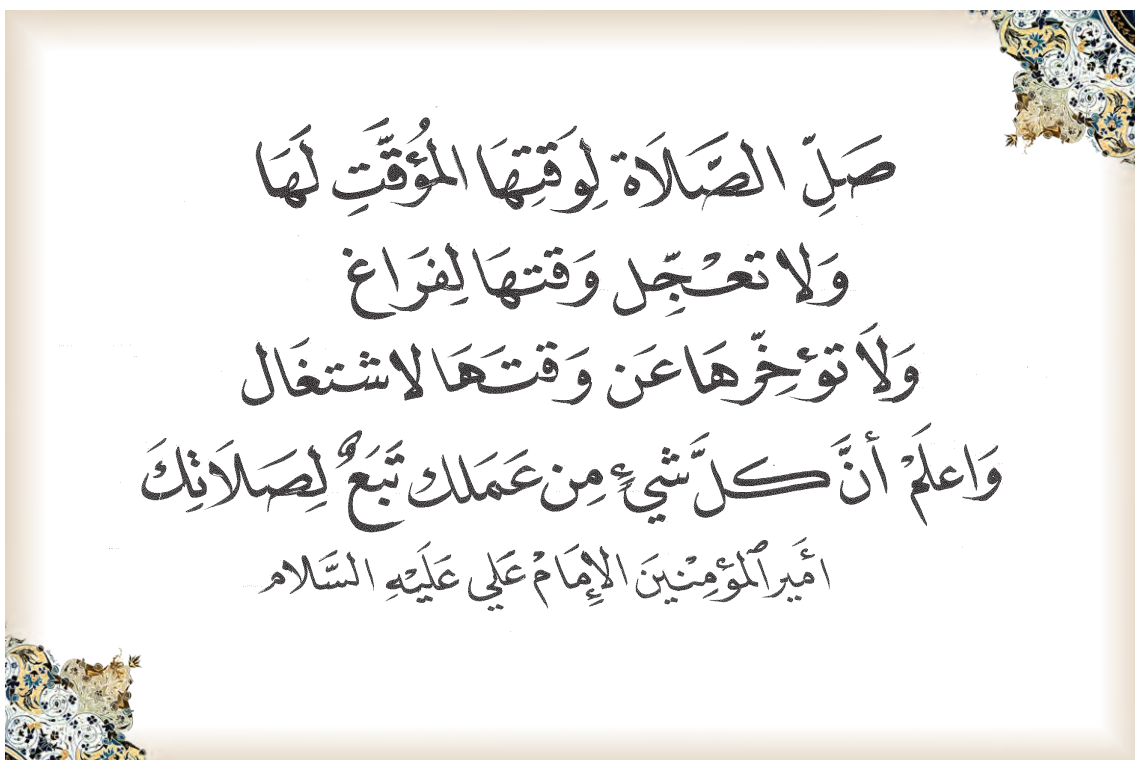 صَلِّ الصَّلَاة لِوَقتِهَا المُؤقَّتِ لَهَا
وَلا تعْجِّل وَقتهَا لِفرَاغ
وَلَا تؤخِّرهَا عَن وَقتهَا لاشتغَال
وَاعلَمْ أنَّ كلَّ شيءٍ مِن عَمَلك تَبَعٌ لِصَلاتِكَ
أمَير المؤمِنْينَ الإمَامْ عَلي عَلَيْهِ السَّلام